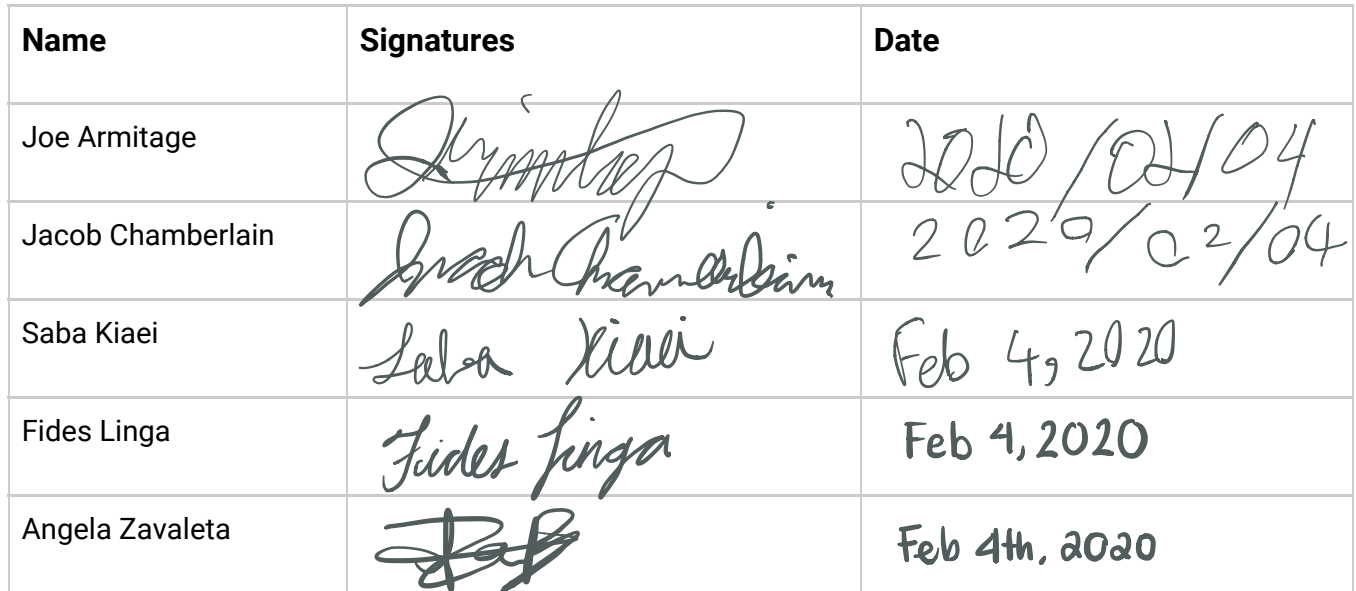 Name Signatures Date
Joe Armitage 2020/02/04
Jacob Chamberlain Jacob Chamberlain 2020/02/04
Saba Kiaei Saba Kiaei Feb 4, 2020
Fides Linga Fides Linga Feb 4, 2020
Angela Zavaleta Feb 4th, 2020